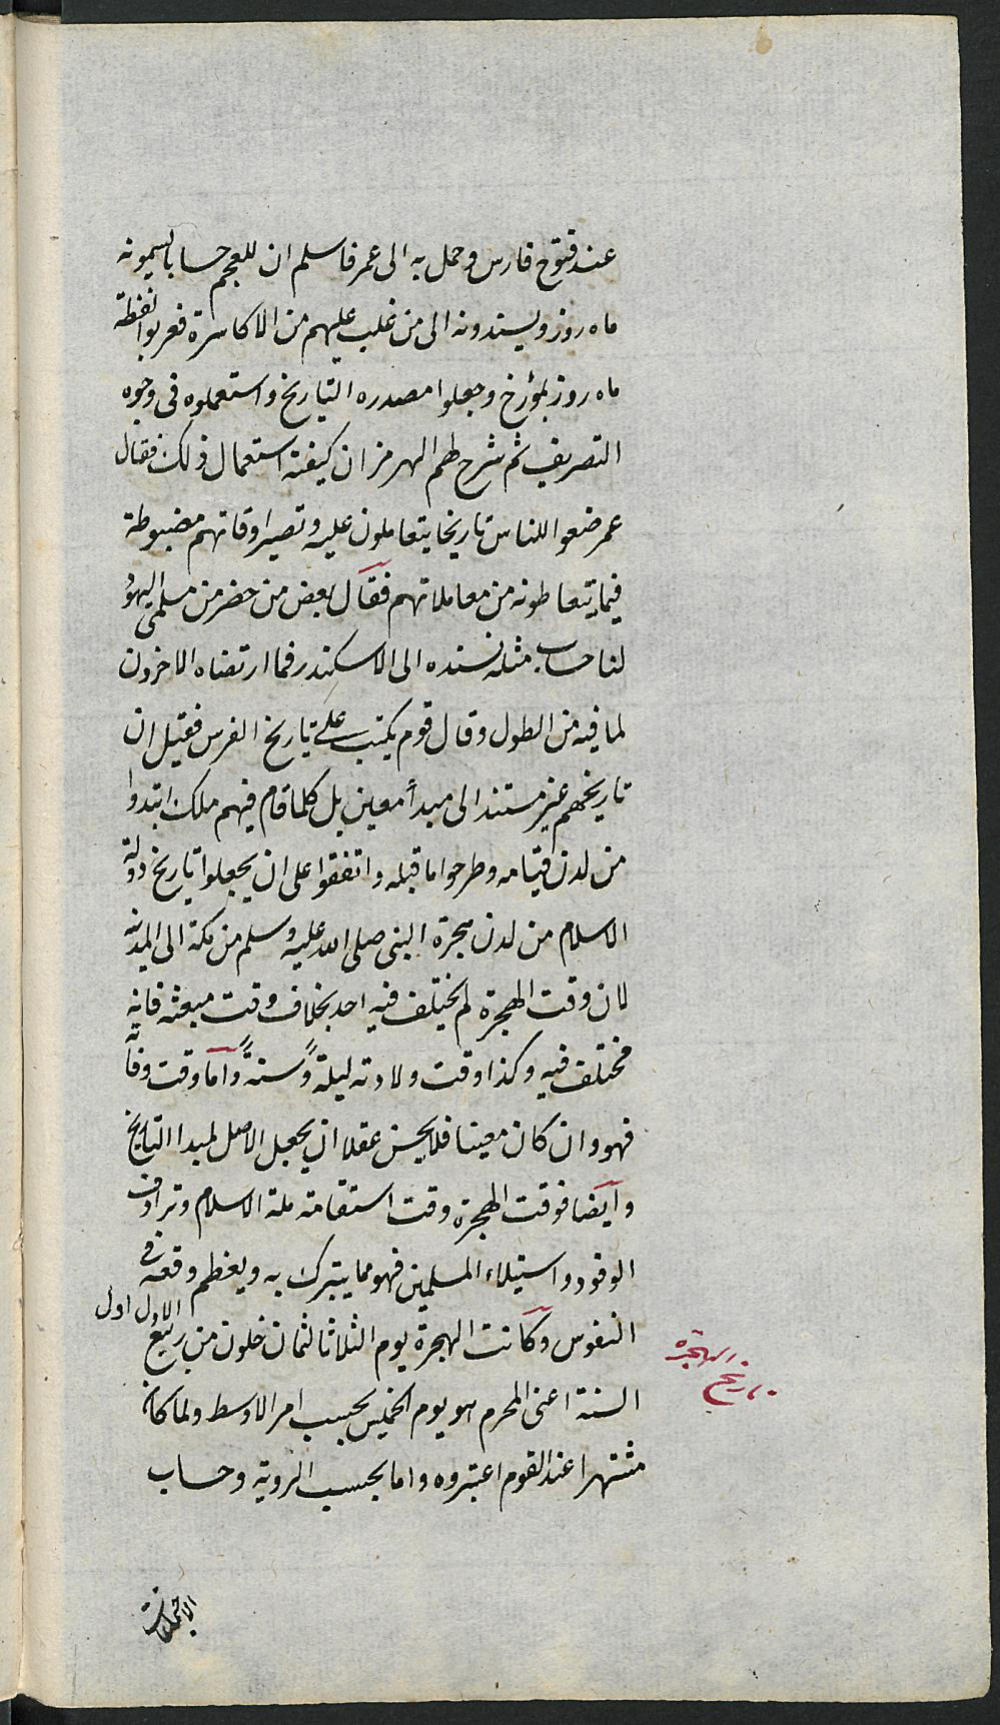 عند فتوح فارس وحمل به الى عمر فاسلم ان للعجم حسابا يسمونه
ماه روز ويسندونه الى من غلب عليهم من الاكاسرة فعربوا لفظة
ماه روز بمؤرخ وجعلوا مصدره التاريخ واستعملوه فى وجوه
التصريف ثم شرح لهم الهرمزان كيفية استعمال ذلك فقال
عمر ضعوا للناس تاريخا يتعاملون عليه وتصير اوقاتهم مضبوطة
فيما يتعاطونه من معاملاتهم فقال بعض من حضر من مسلمى اليهود
لنا حساب مثله نسنده الى الاسكندر فما ارتضاه الاخرون
لما فيه من الطول وقال قوم يكتب على تاريخ الفرس فقيل ان
تاريخهم غير مستند الى مبدأ معين بل كلما قام فيهم ملك ابتدوا
من لدن قيامه وطرحوا ما قبله واتفقوا على ان يجعلوا تاريخ دولة
الاسلام من لدن هجرة النبى صلى الله عليه وسلم من مكة الى المدينة
لان وقت الهجرة لم يختلف فيه احد بخلاف وقت مبعثه فانه
مختلف فيه وكذا وقت ولادته ليلةً وسنةً واما وقت وفاته
فهو وان كان معينا فلا يحسن عقلا ان يجعل الاصل لمبدا التاريخ
وايضا فوقت الهجرة وقت استقامة ملة الاسلام وترادف
الوفود واستيلاء المسلمين فهو مما يتبرك به ويعظم وقعه فى
النفوس وكانت الهجرة يوم الثلاثا لثمان خلون من ربيع الاول اول
السنة اعنى المحرم هو يوم الخميس بحسب امر الاوسط ولما كان
مشتهرا عند القوم اعتبروه واما بحسب الروية وحساب
تاريخ الهجرة